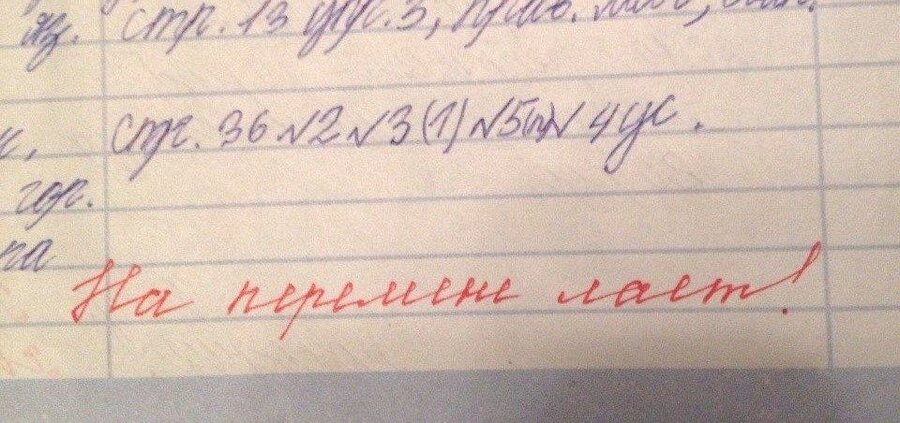 яз. стр. 13 упр. 3,
стр. 36 №2 №3(1) №5(п) №4 ус.
На перемене лает!